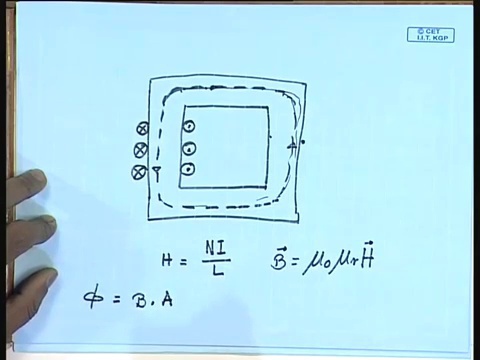 © CET
I.I.T. KGP
H = NI / L
B⃗ = μ₀ μr H⃗
ϕ = B . A